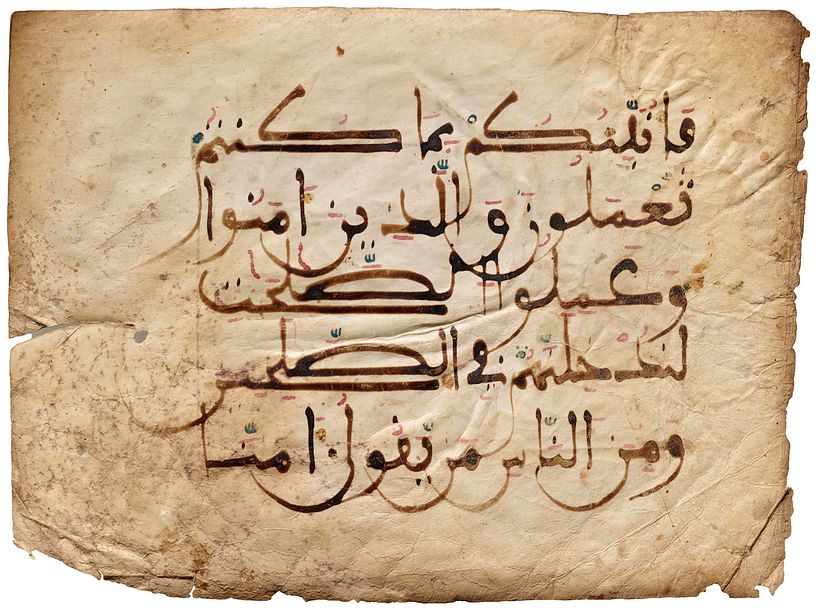 فأنبئكم بما كنتم
تعملون والذين امنوا
وعملوا الصلحت
لندخلنهم في الصلحين
ومن الناس من يقول امنا